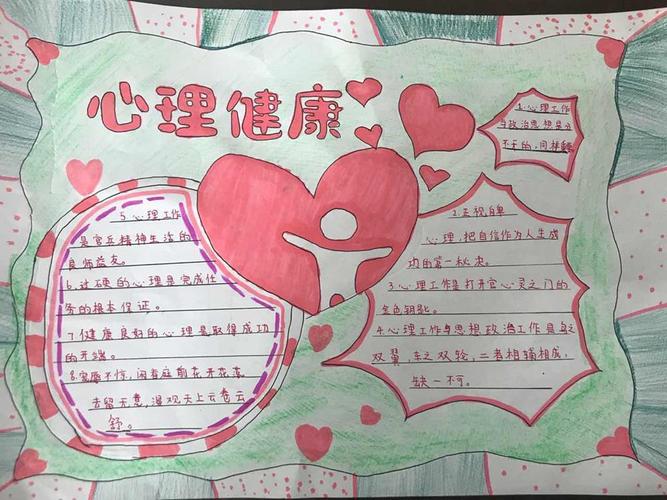 心理健康
1.心理工作
与政治思想是分
不开的，同样
2.正视自卑
心理，把自信作为人生成
功的第一秘诀。
3.心理工作是打开官心灵之门的
金色钥匙。
4.心理工作与思想政治工作是鸟之
双翼，车之双轮，二者相辅相成，
缺一不可。
5.心理工作
是官兵精神生活的
良师益友。
6.过硬的心理是完成任
务的根本保证。
7.健康良好的心理是取得成功
的开端。
8.宠辱不惊，闲看庭前花开花落
去留无意，漫观天上云卷云
舒。